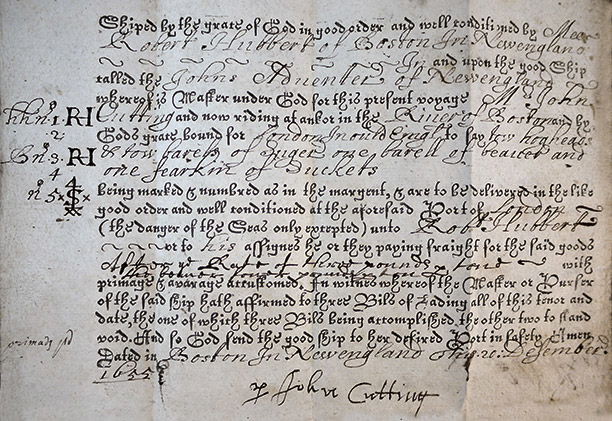 Shiped by the grace of God in good order and well conditioned by Mee
Robert Hubbert of Boston In Newengland
In and upon the good Ship
called the Johns Aduenter of Newengland
whereof is Master under God for this present voyage Mr John
hhn: 1 RH Cutting and now riding at ankor in the Riuer of Boston and by
2 Gods grace bound for London in ould to say tow
Bn: 3 RH & tow barells of one barell of beauer and
4 one of
no 5 being marked & numbred as in the margent, & are to be delivered in the like
good order and well conditioned at the aforesaid Port of London
(the danger of the Seas only excepted) unto Robt Hubbert
or to his assignes he or they paying fraight for the said goods
After ye Rate of three pounds p tone with
primage & avarage accustomed. In witnes whereof the Master or Purser
of the said ship hath affirmed to three Bils of Lading all of this tenor and
date, the one of which three Bils being accomplished, the other two to stand
void. And so God send the good ship to her desired Port in safety Amen.
Dated in Boston In Newengland 20: Desember
1655
p John Cutting